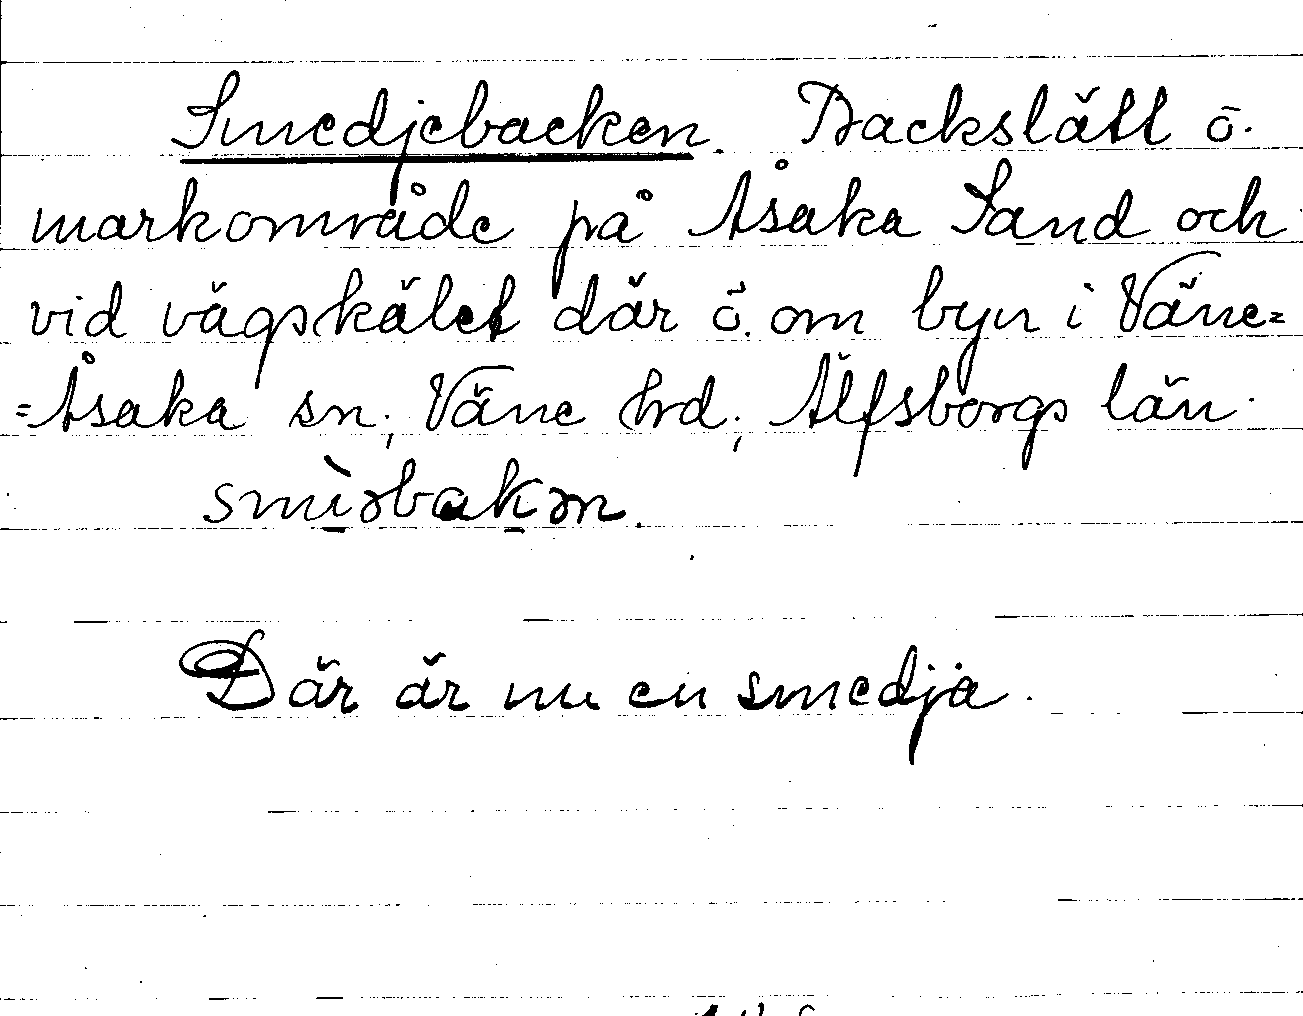 Smedjebacken. Backslätt ö.
markområde på Åsaka Sand och
vid vägskälet där ö. om byn i Väne=
=Åsaka sn, Väne hrd, Älfsborgs län.
smìəbakən.
Där är nu en smedja.